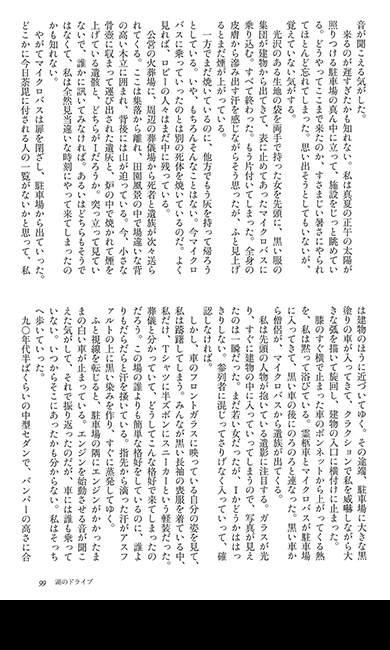 音が聞こえる気がした。
来るのが遅すぎたかも知れない。私は真夏の正午の太陽が
照りつける駐車場の真ん中に立って、施設をじっと眺めてい
る。どうやってここまで来たのか、すさまじい暑さにやられ
てほとんど忘れてしまった。思い出そうとしてもたいないが、
覚えていない気がする。
光沢のある生地の袋を両手で持った女を先頭に、黒い服の
集団が建物から出てきて、表に止めてあったマイクロバスに
乗り込む。すべて終わった。もう片付いてしまった。全身の
皮膚から滲み出す汗を感じながらそう思ったが、ふと見上げ
るとまだ煙が上がっている。
一方でまだ焼いているのに、他方でもう灰を持って帰ろう
としている。いや、もちろんそんなことはない。今マイクロ
バスに乗っていったのとは別の死体を焼いているのだ。よく
見れば、ロビーの人々はまだ中に残っている。
公営の火葬場に、周辺の葬儀場から死者と遺族が次々送ら
れてくる。ここは集落から離れ、田園風景の中で場違いな背
の高い木立に囲まれ、背後には山が迫っている。今、小さな
骨壺に収まって運び出された遺灰と、炉の中で焼かれて煙を
上げている遺骸と、どちらがIだろうか。突っ立って見てい
ないで、誰かに訊いてみなければ。あるいはどちらもそうで
はなくて、私は全然見当違いな時刻にやって来てしまったの
かも知れない。
やがてマイクロバスは扉を閉ざし、駐車場から出ていった。
どこかに今日荼毘に付される人の一覧がないかと思って、私
は建物のほうに近づいてゆく。その途端、駐車場に大きな黒
塗りの車が入ってきて、クラクションで私を威嚇しながら大
きな弧を描いて旋回し、建物の入り口に横付けに止まった。
膝のすぐ横で止まった車のボンネットから上がってくる熱
を、私は黙って浴びている。霊柩車とマイクロバスが駐車場
に入ってきて、黒い車の後にのろのろと連なった。黒い車か
ら僧侶が、マイクロバスから遺族が出てくる。
私は先頭の人物が抱いている遺影に注目する。ガラスが光
り、すぐに建物の中に入っていってしまうので、写真が見え
たのは一瞬だった。まだ若い女だったが、Iかどうかははっ
きりしない。参列者に混じってさりげなく入っていって、確
認しなければ。
しかし、車のフロントガラスに映っている自分の姿を見て、
私は躊躇してしまう。みんなが黒い長袖の喪服を着ている中、
私だけ、Tシャツに半ズボンにスニーカーという軽装だった。
葬儀と分かっていて、どうしてこんな格好で来てしまったの
だろう。この場の誰よりも簡単な格好をしているのに、誰よ
りもだらだらと汗を掻いている。指先から滴った汗がアスフ
ァルトの上に黒い染みを作り、すぐに蒸発してゆく。
ふと視線を転じると、駐車場の隅にエンジンがかかったま
まの白い車が止まっている。エンジンを始動させる音が聞こ
えた気がして、それで振り返ったのだが、車には誰も乗って
いない。いつからそこにあったかも分からない。私はそっち
へ歩いていった。
九〇年代半ばくらいの中型セダンで、バンパーの高さに合
99 湖のドライブ